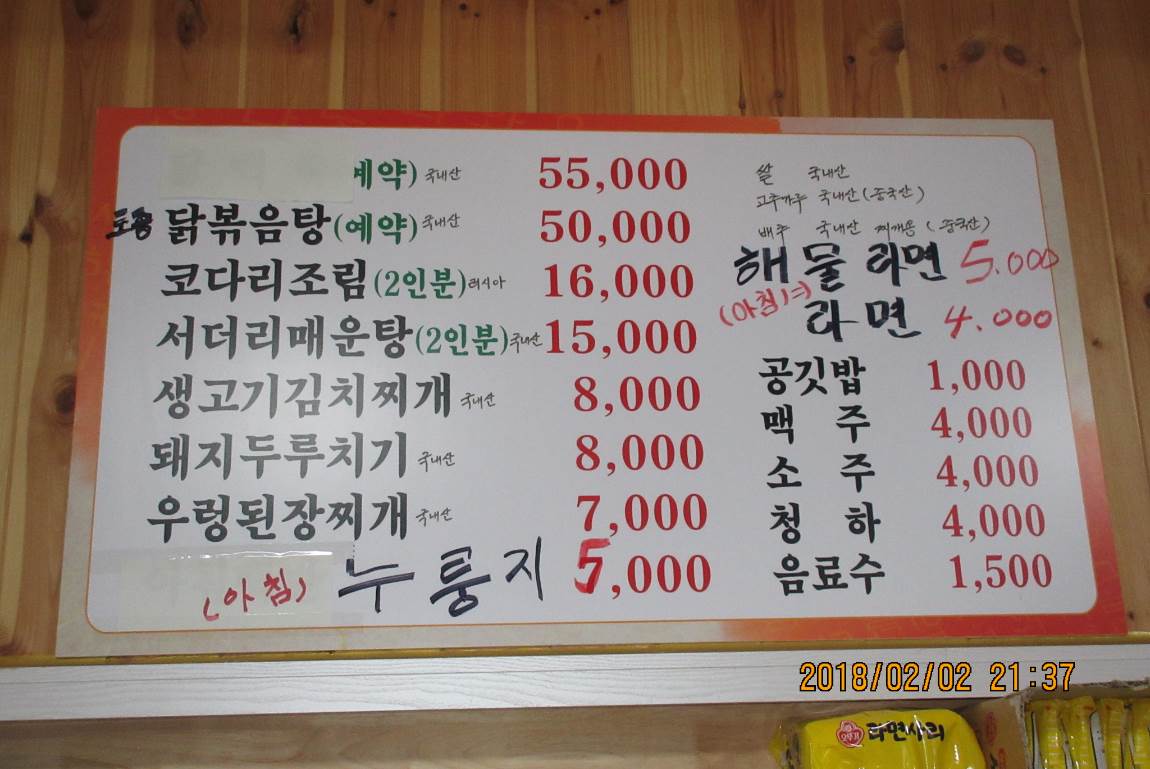 예약) 국내산 55,000
토종 닭볶음탕(예약) 국내산 50,000
코다리조림(2인분) 러시아 16,000
서더리매운탕(2인분) 국내산 15,000
생고기김치찌개 국내산 8,000
돼지두루치기 국내산 8,000
우렁된장찌개 국내산 7,000
(아침) 누룽지 5,000
쌀 국내산
고추가루 국내산(중국산)
배추 국내산 찌개용 (중국산)
해물라면 5.000
(아침)⇒) 라면 4.000
공깃밥 1,000
맥주 4,000
소주 4,000
청하 4,000
음료수 1,500
2018/02/02 21:37
오뚜기 라면사리